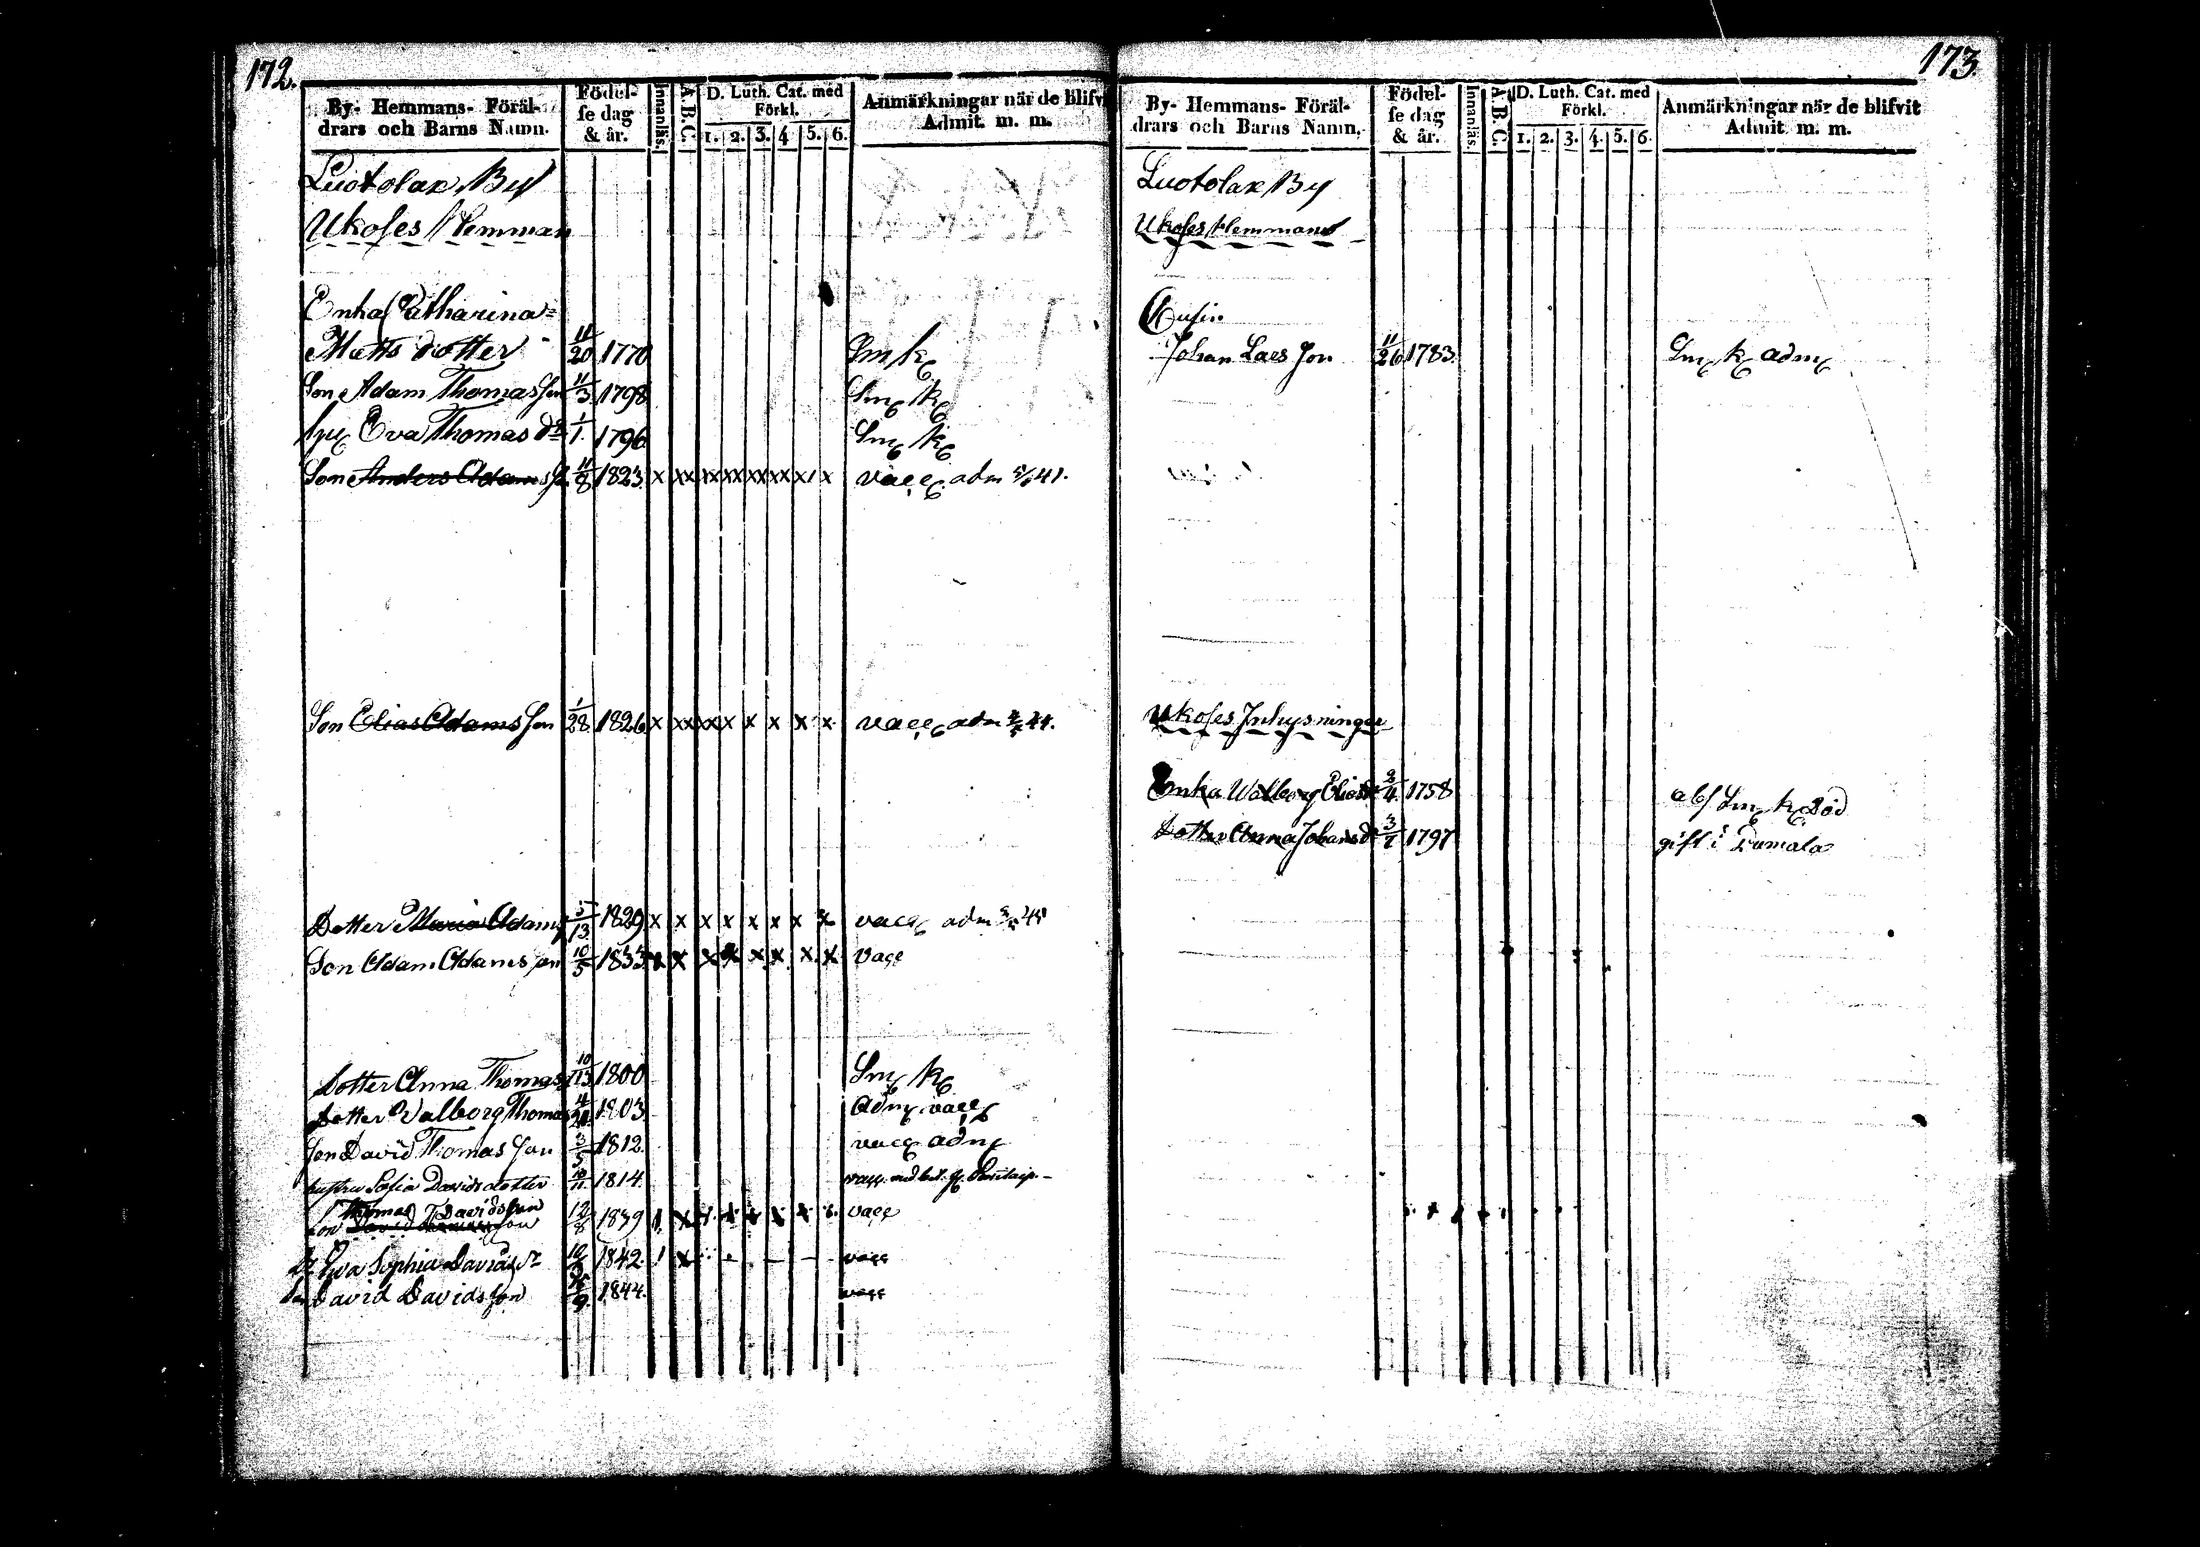 172.
By- Hemmans- Föräl-
drars och Barns Namn.
Födel-
se dag
& år.
Innanläs.
A. B. C.
D. Luth. Cat. med
Förkl.
1. 2. 3. 4 5. 6.
Anmärkningar när de blifvit
Admit. m. m.
Luotolax By
Ukoses Hemman
Enka Catharina
Matts dotter 11/20 1770 Sm k
Son Adam Thomas Son 11/3 1798 Sm k
Eva Thomas dr 1/1. 1796 Sm k
Son Anders Adams 11/8 1823 x xx xx xx xx xx x x vacc adm 41.
Son Elias Adams Son 1/28 1826 x xx xx x x x x x vacc adm 44.
Dotter Maria Adams 5/13 1829 x x x x x x x x vacc adm 45
Son Adam Adams son 10/5 1833 x x x x x x x x vacc
Dotter Anna Thomas 10/13 1800 Sm k
Dotter Valborg Thomas 4/20 1803 Adm vacc
Son David Thomas Son 3/5 1812. vacc adm
hustru Sofia Davids dotter 10/11 1814 vacc.
Thomas Davidsson
son 12/8 1839 vacc
Dr Eva Sophia Davids dr 1842. vacc
Son David Davids Son 1844. vacc
173.
By- Hemmans- Föräl-
drars och Barns Namn,
Födel-
se dag
& år.
Innanläs.
A. B. C.
D. Luth. Cat. med
Förkl.
1. 2. 3. 4. 5. 6.
Anmärkningar när de blifvit
Admit. m. m.
Luotolax By
Ukoses Hemmans
Cusin
Johan Lars Son 11/26 1783. Sm k adm
Ukoses Inhysningar
Enka Walborg Elias dr 2/4. 1758 abs Sm k Död
Dotter Anna Johans dr 3/7 1797 gift i Pumala